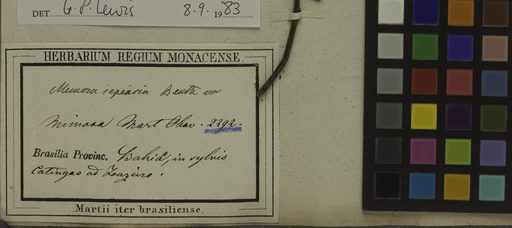 DET G. P. Lewis 8.9.1983
HERBARIUM REGIUM MONACENSE.
Memora Benth
Mimosa Mart 2292.
Brasilia Provinc. Bahia, in sylvis
Catingas ad Joazeiro.
Martii iter brasiliense.